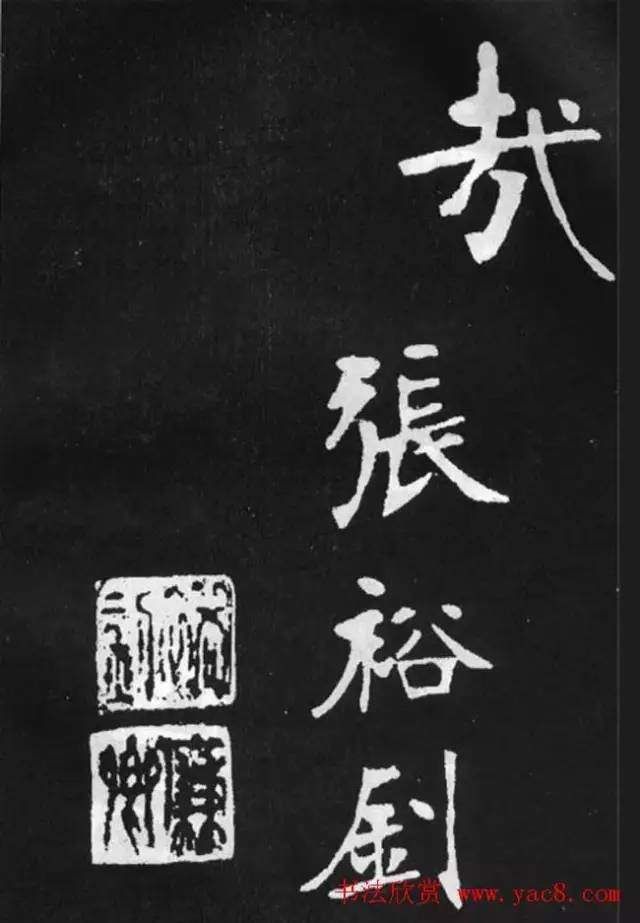 張裕釗
廉卿
书法欣赏 www.yac8.com